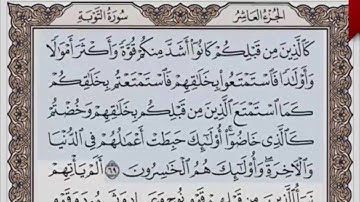 الجُزْءُ العَاشِرُ
سُورَةُ التَّوْبَةِ
كَٱلَّذِينَ مِن قَبْلِكُمْ كَانُوٓا۟ أَشَدَّ مِنكُمْ قُوَّةً وَأَكْثَرَ أَمْوَٰلًا
وَأَوْلَٰدًا فَٱسْتَمْتَعُوا۟ بِخَلَٰقِهِمْ فَٱسْتَمْتَعْتُم بِخَلَٰقِكُمْ
كَمَا ٱسْتَمْتَعَ ٱلَّذِينَ مِن قَبْلِكُم بِخَلَٰقِهِمْ وَخُضْتُمْ
كَٱلَّذِى خَاضُوٓا۟ ۚ أُو۟لَٰٓئِكَ حَبِطَتْ أَعْمَٰلُهُمْ فِى ٱلدُّنْيَا
وَٱلْءَاخِرَةِ ۖ وَأُو۟لَٰٓئِكَ هُمُ ٱلْخَٰسِرُونَ ٦٩ أَلَمْ يَأْتِهِمْ
نَبَأُ ٱلَّذِينَ مِن قَبْلِهِمْ قَوْمِ نُوحٍ وَعَادٍ وَثَمُودَ وَقَوْمِ